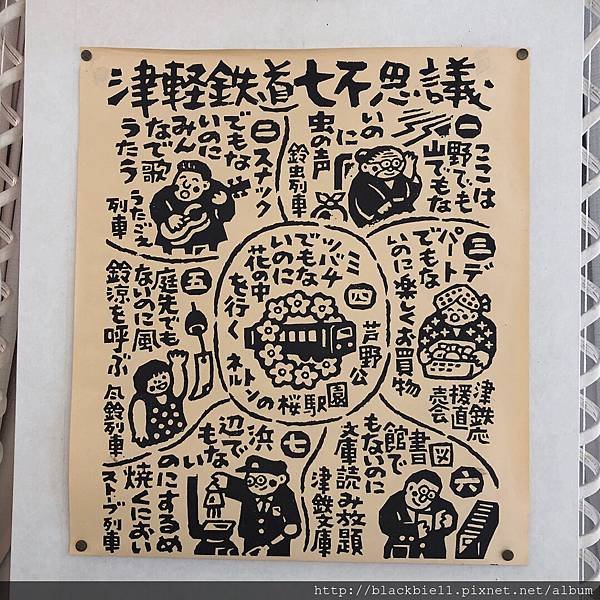 津軽鉄道七不思議
一
ここは
野でも
山でもな
いのに
虫の声
鈴虫列車
二
スナック
でもな
いのに
みん
なで歌
うたう
うたごえ
列車
三
デ
パート
でもな
いのに楽しくお買物
津鉄応
援直
売会
四
ミ
ツバチ
でもな
いのに
花の中
を行く
芦野公
園駅桜の
トンネル
五
庭先でも
ないのに風
鈴涼を呼ぶ
風鈴列車
六
図書
館で
もないのに
文庫読み放題
津鉄文庫
七
浜
辺で
もな
い
のにするめ
焼くにおい
ストーブ列車
http://blackbie11.pixnet.net/album